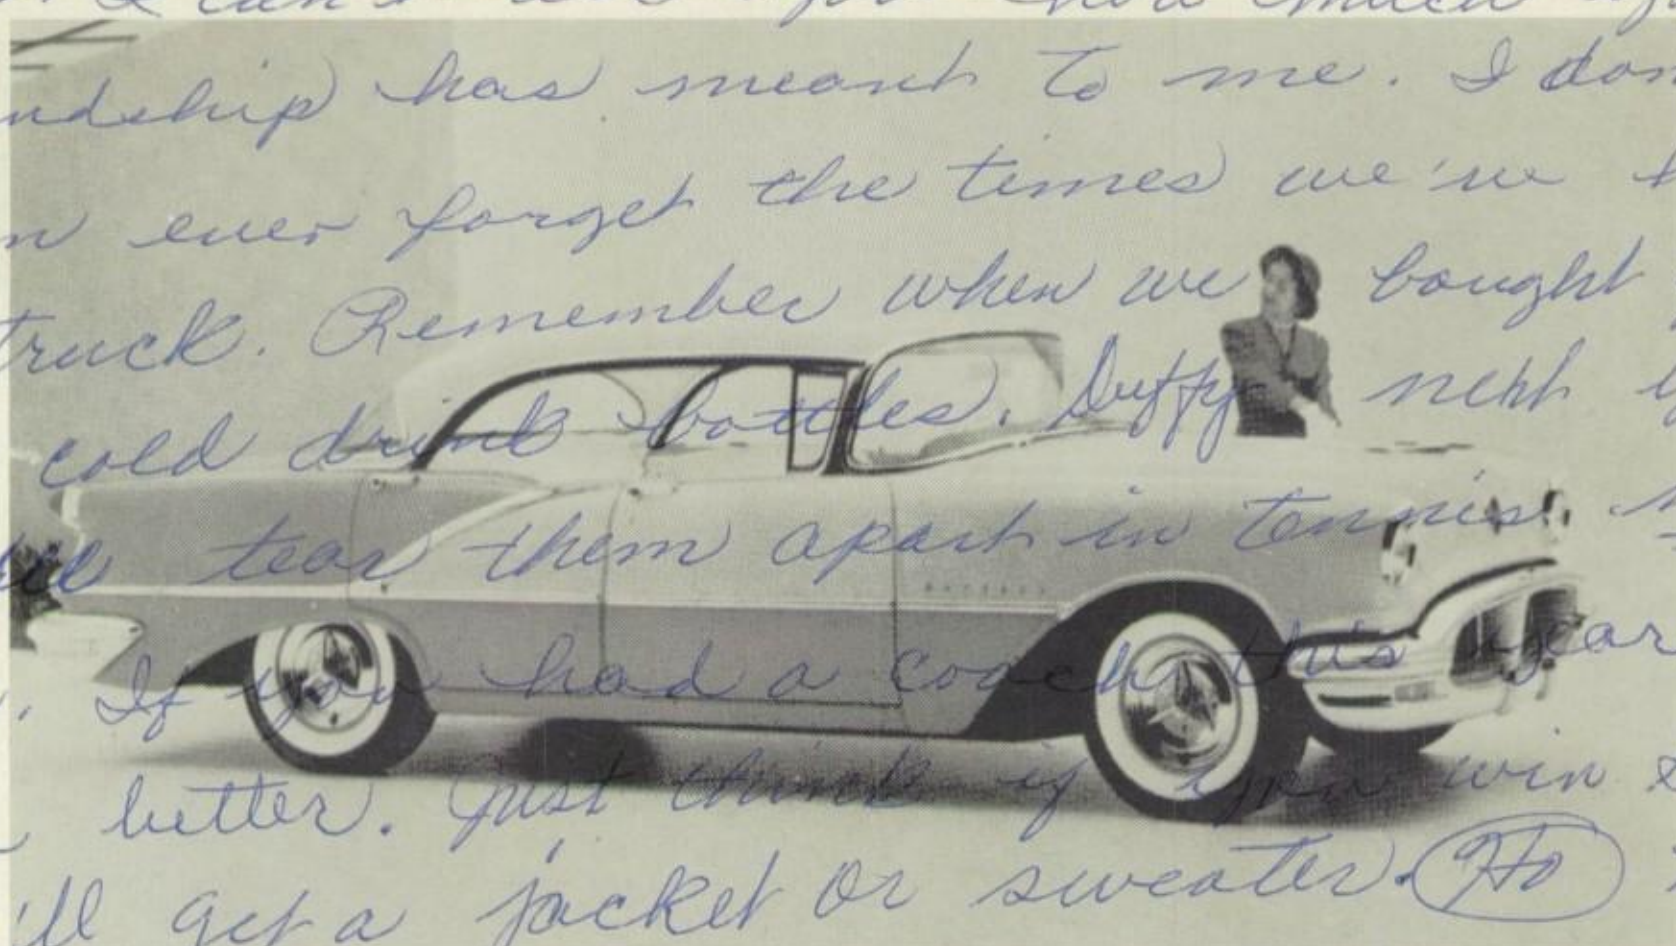 I can't how much
ndship has meant to me. I don
n ever forget the times we've
truck. Remember when we bought
cold drink bottles. Duffy next
tear them apart in tennis.
If you had a coach this year
better. Just think if you win
'll get a jacket or sweater. Ho